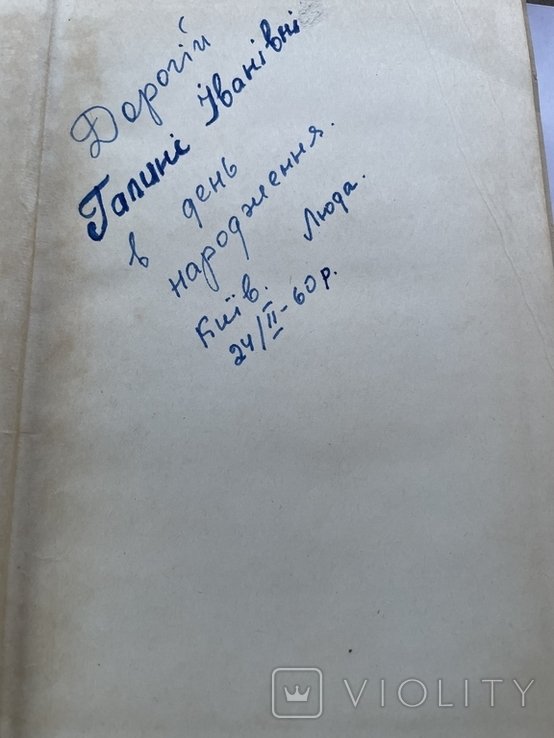 Дорогій
Галині Іванівні
в день
народження.
Люда.
Київ.
24/II-60р.
VIOLITY